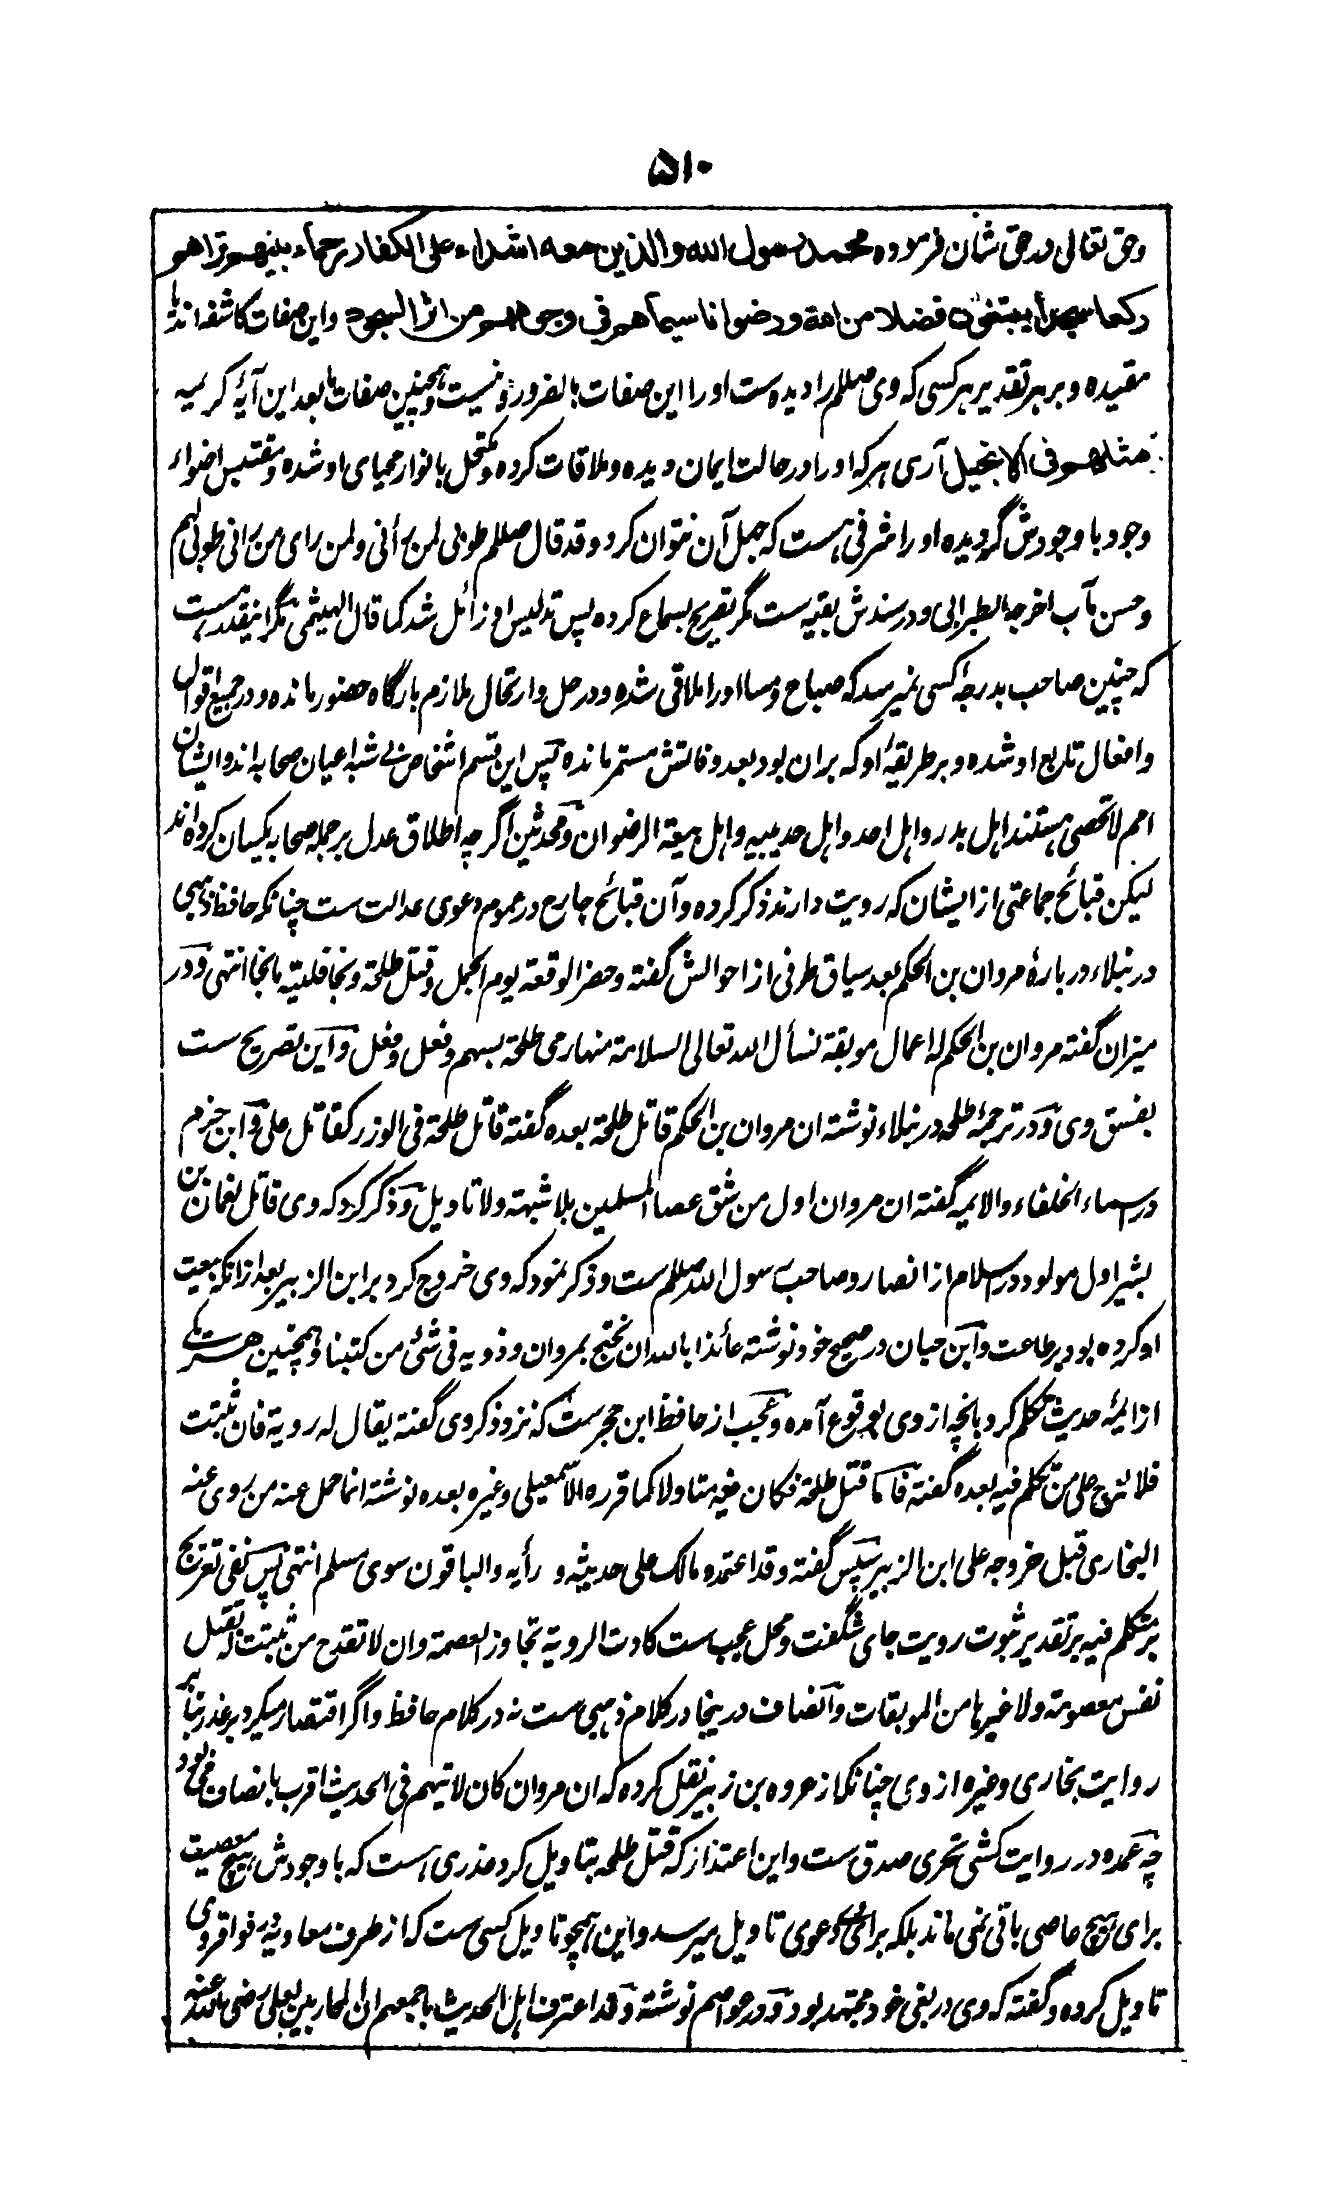 ۵۱۰
وحق تعالی در حق شان فرموده محمد رسول الله والذین معه اشداء علی الکفار رحماء بینهم تراهم
رکعا سجدا یبتغون فضلا من الله ورضوانا سیماهم فی وجوههم من اثر السجود واین صفات کاشفه اند یا
مقیده و بر هر تقدیر هر کسی که وی صللم را دیده ست او را این صفات بالضرور نیست وهمچنین صفات ما بعد این آیهٔ کریمه
مثلهم فی الانجیل آری هر که او را در حالت ایمان دیده و ملاقات کرده و مکتحل بانوار محیای او شده و مقتبس اضواء
وجود با وجودش گردیده او را شرفی هست که جهل آن نتوان کرد وقد قال صللم طوبی لمن رأنی ولمن رای من رانی طوبی لهم
وحسن مآب اخرجه الطبرانی ودر سندش بقیه ست مگر تصریح بسماع کرده پس تدلیس او زائل شد کما قال الهیثمی مگر اینقدر هست
که چنین صاحب بدرجهٔ کسی نمیرسد که صباح ومسا او را ملاقی شده ودر حل وارتحال ملازم بارگاه حضور مانده ودر جمیع اقوال
وافعال تابع او شده و بر طریقهٔ او که بران بود بعد وفاتش مستمر مانده پس این قسم اشخاص بی شبه اعیان صحابه اند وایشان
امم لا تحصی هستند اهل بدر واهل احد واهل حدیبیه واهل بیعة الرضوان ومحدثین اگرچه اطلاق عدل بر جمله صحابه یکسان کرده اند
لیکن قبائح جماعتی از ایشان که رویت دارند ذکر کرده وآن قبائح جارح در عموم دعوی عدالت ست چنانکه حافظ ذهبی
در نبلاء دربارهٔ مروان بن الحکم بعد سیاق طرفی از احوالش گفته وحضر الوقعة یوم الجمل وقتل طلحة ونجا فلیته ما نجا انتهی ودر
میزان گفته مروان بن الحکم له اعمال موبقة نسأل الله تعالی السلامة منها رمی طلحة بسهم وفعل وفعل واین تصریح ست
بفسق وی ودر ترجمهٔ طلحه در نبلاء نوشته ان مروان بن الحکم قاتل طلحة بعده گفته قاتل طلحة فی الوزر کقاتل علی وابن حزم
در اسماء الخلفاء والایمه گفته ان مروان اول من شق عصا المسلمین بلا شبهة ولا تاویل وذکر کرد که وی قاتل نعمان بن
بشیر اول مولود در اسلام از انصار وصاحب رسول الله صللم ست وذکر نمود که وی خروج کرد بر ابن الزبیر بعد ازانکه بیعت
او کرده بود بر طاعت وابن حبان در صحیح خود نوشته عائذا بالله ان نحتج بمروان وذویه فی شئ من کتبنا وهمچنین هر یکی
از ایمهٔ حدیث تکلم کرد بانچه از وی بوقوع آمده وعجب از حافظ ابن حجر ست که نزد ذکر وی گفته یقال له رویة فان ثبتت
فلا یعرج علی من تکلم فیه بعده گفته فاما قتل طلحة فکان فیه متاولا کما قرره الاسمعیلی وغیره بعده نوشته انما حمل عنه من روی عنه
البخاری قبل خروجه علی ابن الزبیر سپس گفته وقد اعتمد مالک علی حدیثه و رأیه والباقون سوی مسلم انتهی پس نفی تعریج
بر متکلم فیه بر تقدیر ثبوت رویت جای شگفت ومحل عجب ست کادت الرویة تجاوز العصمة وان لا تقدح من ثبتت له بقتل
نفس معصومة ولا غیرها من الموبقات وانصاف درینجا در کلام ذهبی ست نه در کلام حافظ واگر اقتصار میکرد بر عذر بنابر
روایت بخاری وغیره از وی چنانکه از عروه بن زبیر نقل کرده که ان مروان کان لا یتهم فی الحدیث اقرب بانصاف می بود
چه عمده در روایت کشی تحری صدق ست واین اعتذار که قتل طلحه بتاویل کرد عذری هست که با وجودش هیچ معصیت
برای هیچ عاصی باقی نمی ماند بلکه برای دعوی تاویل میرسد واین همچو تاویل کسی ست که از طرف معاویه در فواقر وی
تاویل کرده وگفته که وی در بغی خود مجتهد بود ودر عواصم نوشته وقد اعترف اهل الحدیث باجمعهم ان المحاربین لعلی رضی الله عنه